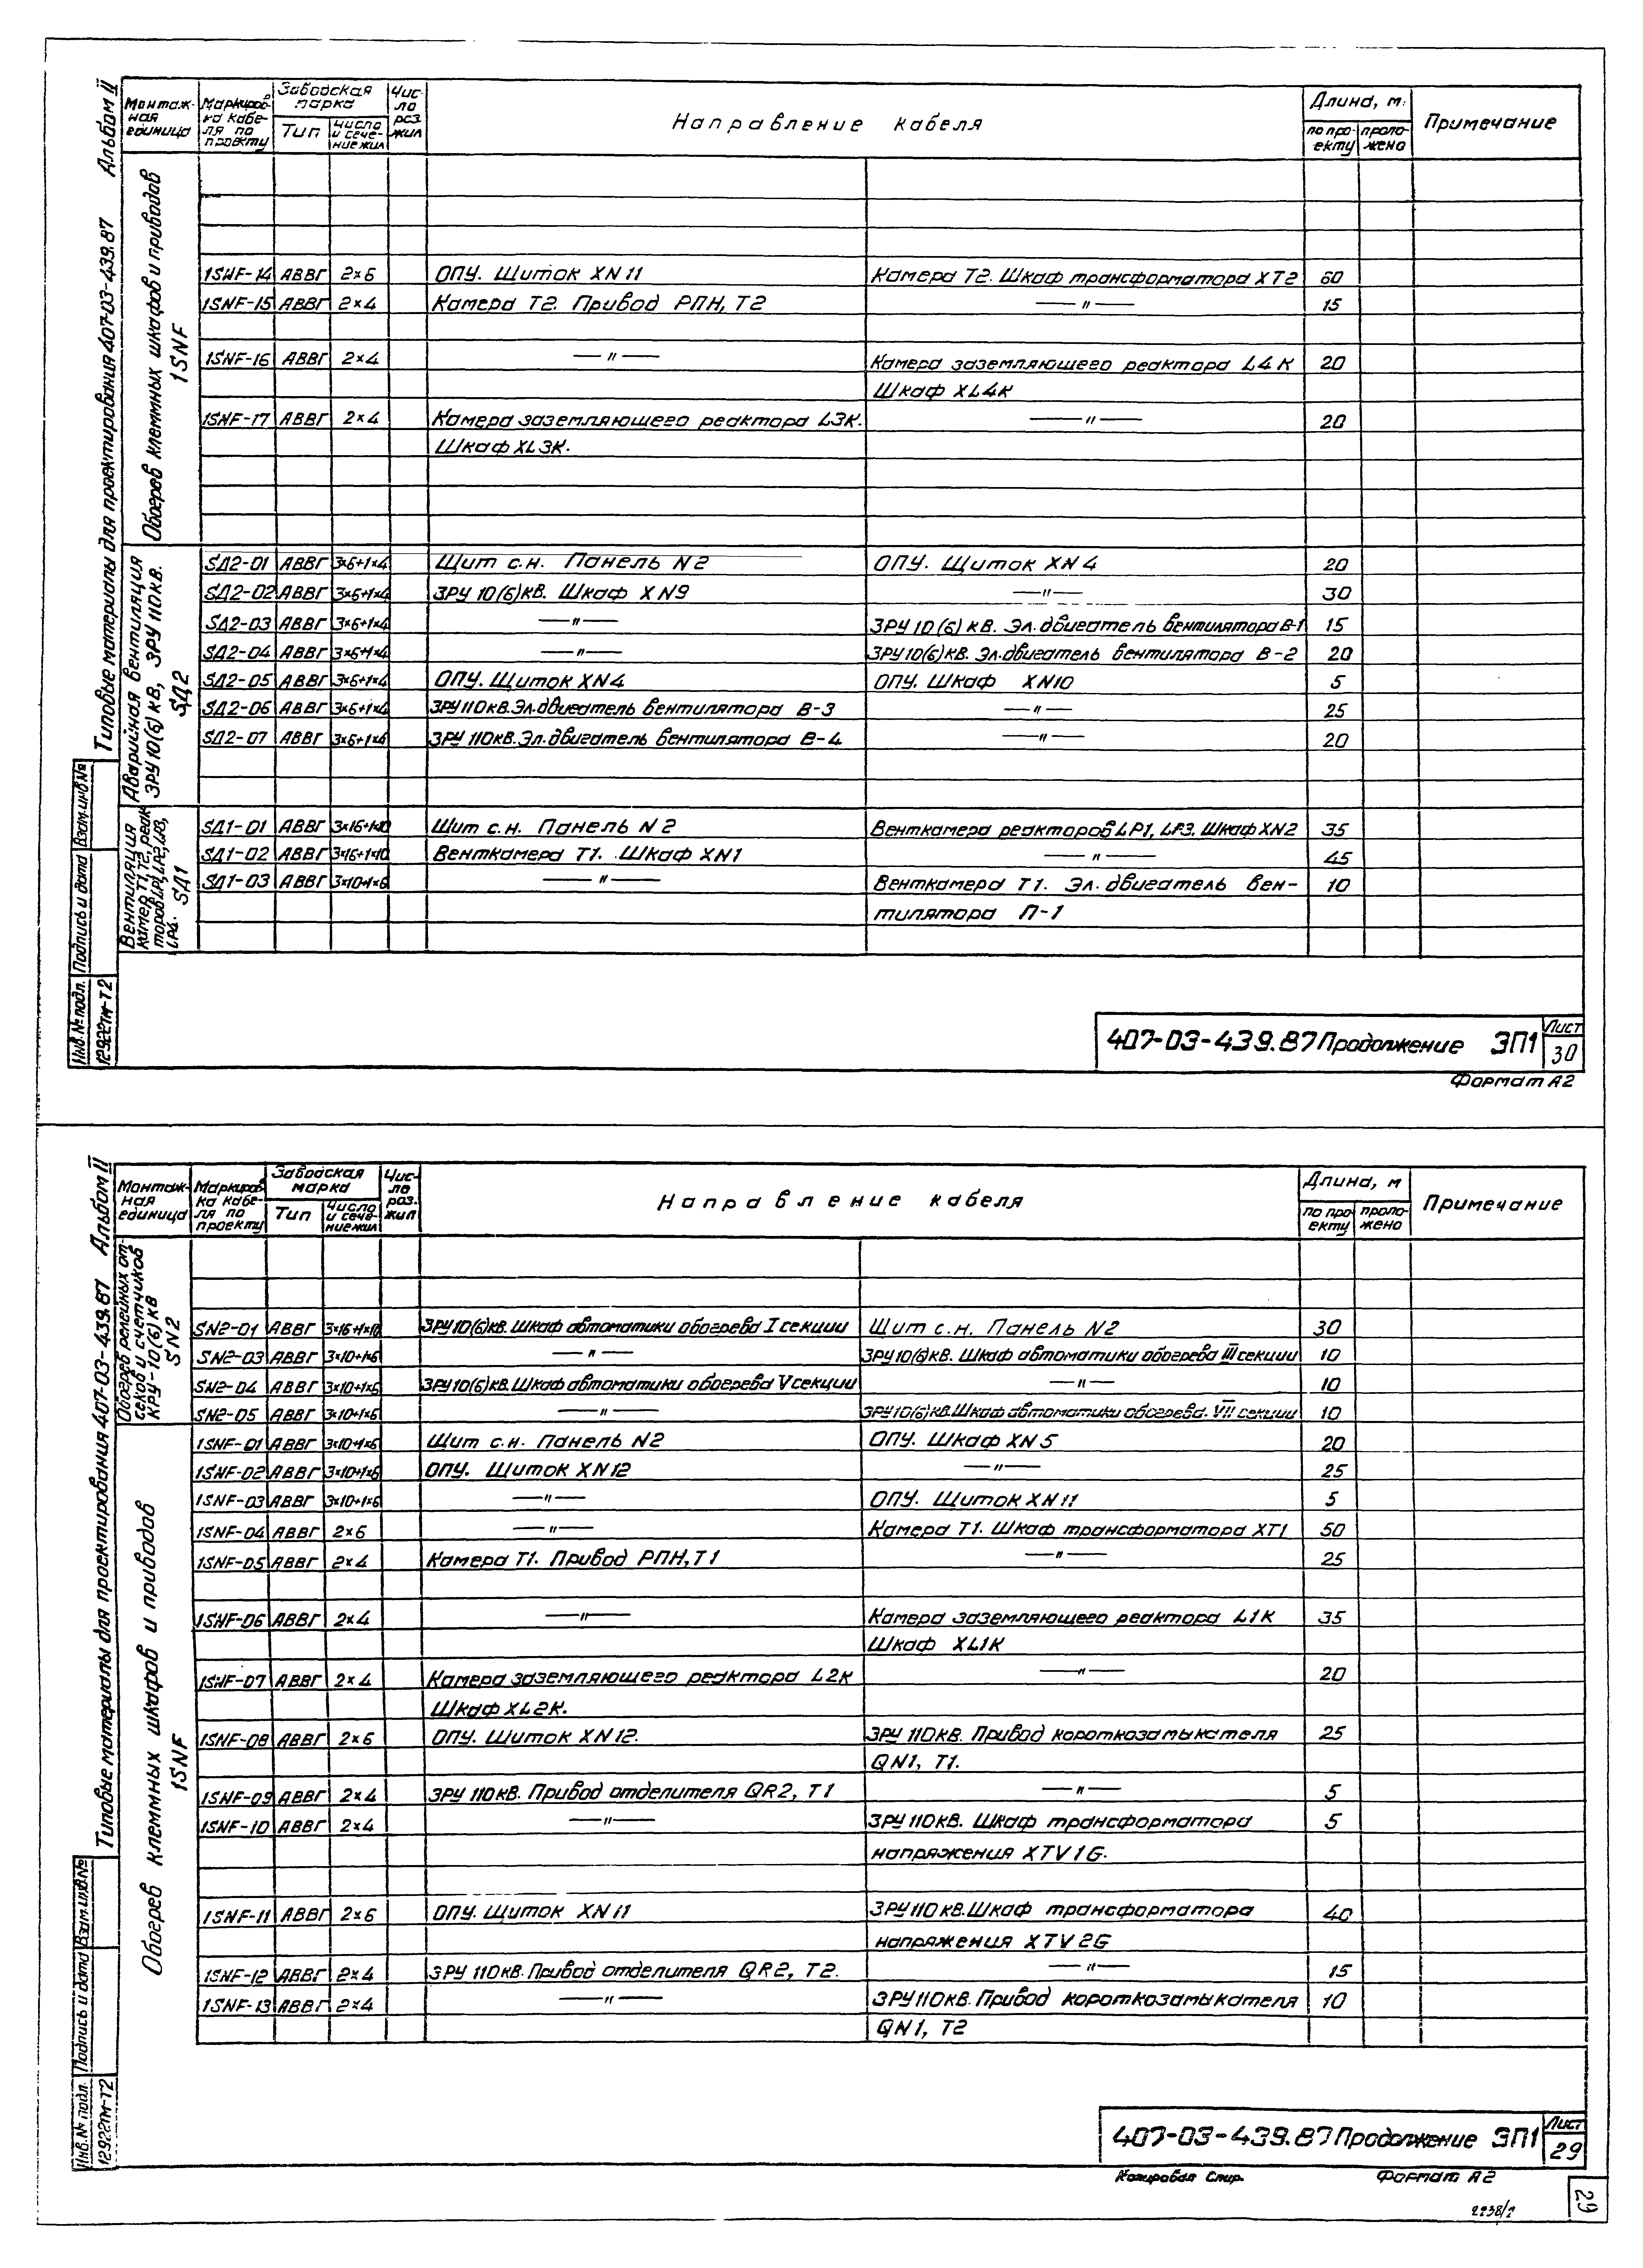 Типовые материалы для проектирования 407-03-439.87 Альбом II
Монтажная единица | Маркировка кабеля по проекту | Заводская марка | Число рез. жил | Направление кабеля | Длина, м. | Примечание
Тип | Число и сечение жил | по проекту | проложено
Обогрев клеммных шкафов и приводов 1SNF
1SNF-14 АВВГ 2×6 ОПУ. Щиток XN11 Камера Т2. Шкаф трансформатора ХТ2 60
1SNF-15 АВВГ 2×4 Камера Т2. Привод РПН, Т2 —〃— 15
1SNF-16 АВВГ 2×4 —〃— Камера заземляющего реактора L4K 20
Шкаф XL4K
1SNF-17 АВВГ 2×4 Камера заземляющего реактора L3K. —〃— 20
Шкаф XL3K.
Аварийная вентиляция ЗРУ 10(6) кВ, ЗРУ 110кВ. SД2
SД2-01 АВВГ 3×6+1×4 Щит с.н. Панель N2 ОПУ. Щиток XN4 20
SД2-02 АВВГ 3×6+1×4 ЗРУ 10(6)кВ. Шкаф XN9 —〃— 30
SД2-03 АВВГ 3×6+1×4 —〃— ЗРУ 10(6) кВ. Эл. двигатель вентилятора В-1 15
SД2-04 АВВГ 3×6+1×4 —〃— ЗРУ 10(6) кВ. Эл. двигатель вентилятора В-2 20
SД2-05 АВВГ 3×6+1×4 ОПУ. Щиток XN4 ОПУ. Шкаф XN10 5
SД2-06 АВВГ 3×6+1×4 ЗРУ 110кВ. Эл. двигатель вентилятора В-3 —〃— 25
SД2-07 АВВГ 3×6+1×4 ЗРУ 110кВ. Эл. двигатель вентилятора В-4 —〃— 20
Вентиляция камер Т1, Т2, реакторов LP1, LP2, LP3, LP4. SД1
SД1-01 АВВГ 3×16+1×10 Щит с.н. Панель N2 Венткамера реакторов LP1, LP3. Шкаф XN2 35
SД1-02 АВВГ 3×16+1×10 Венткамера Т1. Шкаф XN1 —〃— 45
SД1-03 АВВГ 3×10+1×6 —〃— Венткамера Т1. Эл. двигатель вен-
тилятора П-1 10
Инв. № подл. Подпись и дата Взам. инв. №
12922тм-Т2
407-03-439.87 Продолжение ЭП1 Лист 30
Формат А2
Типовые материалы для проектирования 407-03-439.87 Альбом II
Монтажная единица | Маркировка кабеля по проекту | Заводская марка | Число рез. жил | Направление кабеля | Длина, м | Примечание
Тип | Число и сечение жил | по проекту | проложено
Обогрев релейных отсеков и счетчиков КРУ-10(6) кВ SN2
SN2-01 АВВГ 3×16+1×10 ЗРУ 10(6)кВ. Шкаф автоматики обогрева I секции Щит с.н. Панель N2 30
SN2-03 АВВГ 3×10+1×6 —〃— ЗРУ 10(6)кВ. Шкаф автоматики обогрева III секции 10
SN2-04 АВВГ 3×10+1×6 ЗРУ 10(6)кВ. Шкаф автоматики обогрева V секции —〃— 10
SN2-05 АВВГ 3×10+1×6 —〃— ЗРУ 10(6)кВ. Шкаф автоматики обогрева. VII секции 10
Обогрев клеммных шкафов и приводов 1SNF
1SNF-01 АВВГ 3×10+1×6 Щит с.н. Панель N2 ОПУ. Шкаф XN5 20
1SNF-02 АВВГ 3×10+1×6 ОПУ. Щиток XN12 —〃— 25
1SNF-03 АВВГ 3×10+1×6 —〃— ОПУ. Щиток XN11 5
1SNF-04 АВВГ 2×6 —〃— Камера Т1. Шкаф трансформатора ХТ1 50
1SNF-05 АВВГ 2×4 Камера Т1. Привод РПН, Т1 —〃— 25
1SNF-06 АВВГ 2×4 —〃— Камера заземляющего реактора L1K 35
Шкаф XL1K
1SNF-07 АВВГ 2×4 Камера заземляющего реактора L2K —〃— 20
Шкаф XL2K.
1SNF-08 АВВГ 2×6 ОПУ. Щиток XN12. ЗРУ 110кВ. Привод короткозамыкателя 25
QN1, Т1.
1SNF-09 АВВГ 2×4 ЗРУ 110кВ. Привод отделителя QR2, Т1 —〃— 5
1SNF-10 АВВГ 2×4 —〃— ЗРУ 110кВ. Шкаф трансформатора 5
напряжения XTV1G.
1SNF-11 АВВГ 2×6 ОПУ. Щиток XN11 ЗРУ 110кВ. Шкаф трансформатора 40
напряжения XTV2G
1SNF-12 АВВГ 2×4 ЗРУ 110кВ. Привод отделителя QR2, Т2. —〃— 15
1SNF-13 АВВГ 2×4 —〃— ЗРУ 110кВ. Привод короткозамыкателя 10
QN1, Т2
Инв. № подл. Подпись и дата Взам. инв. №
12922тм-Т2
407-03-439.87 Продолжение ЭП1 Лист 29
Копировал Формат А2
29